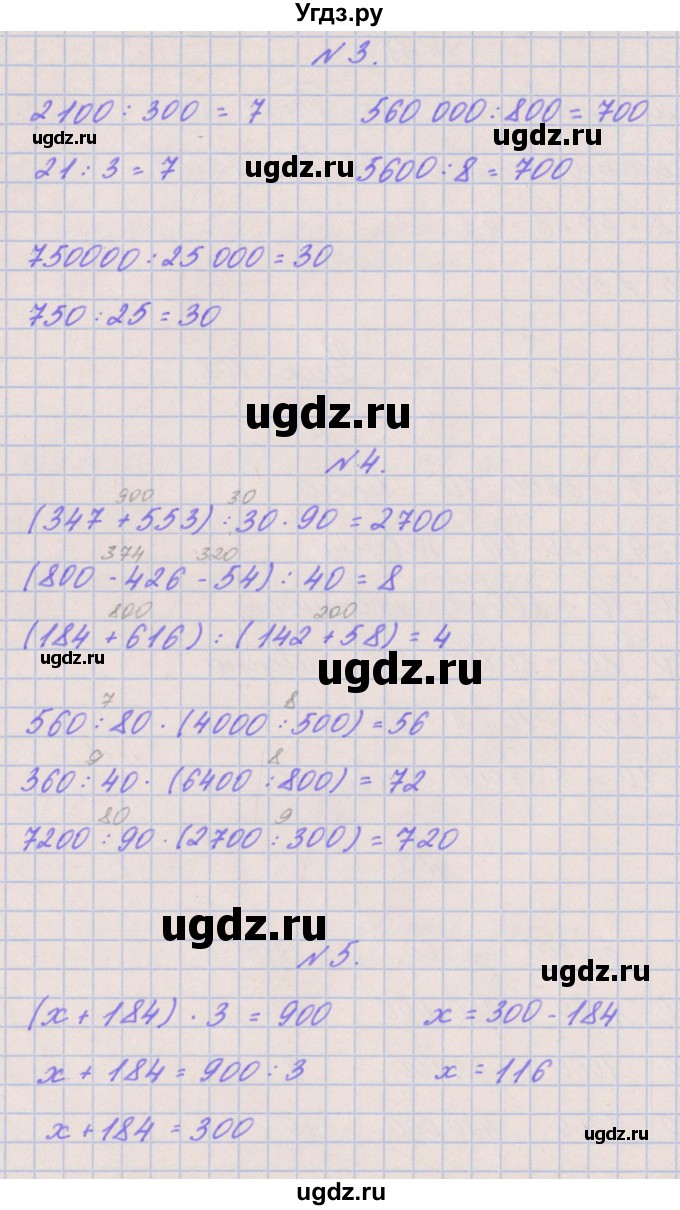 Угдз.ру
N 3.
2100 : 300 = 7 560 000 : 800 = 700
ugdz.ru ugdz.ru
21 : 3 = 7 ugdz.ru 5600 : 8 = 700
750000 : 25 000 = 30
750 : 25 = 30
ugdz.ru
N 4.
900 30
(347 + 553) : 30 · 90 = 2700
374 320
(800 - 426 - 54) : 40 = 8
800 200
(184 + 616) : (142 + 58) = 4
ugdz.ru ugdz.ru
7 8
560 : 80 · (4000 : 500) = 56
9 8
360 : 40 · (6400 : 800) = 72
80 9
7200 : 90 · (2700 : 300) = 720
ugdz.ru
N 5.
ugdz.ru
(x + 184) · 3 = 900 x = 300 - 184
x + 184 = 900 : 3 x = 116
x + 184 = 300
ugdz.ru
ugdz.ru